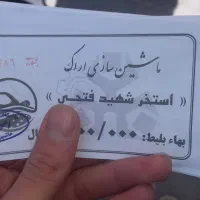 ماشین سازی اراک
« استخر شهید فتحی »
بهاء بلیط: ۰۰/۰۰۰